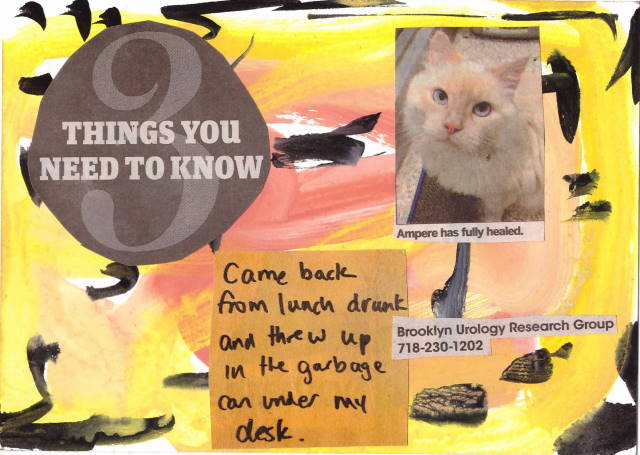 3
THINGS YOU
NEED TO KNOW
Ampere has fully healed.
Came back
from lunch drunk
and threw up
in the garbage
can under my
desk.
Brooklyn Urology Research Group
718-230-1202